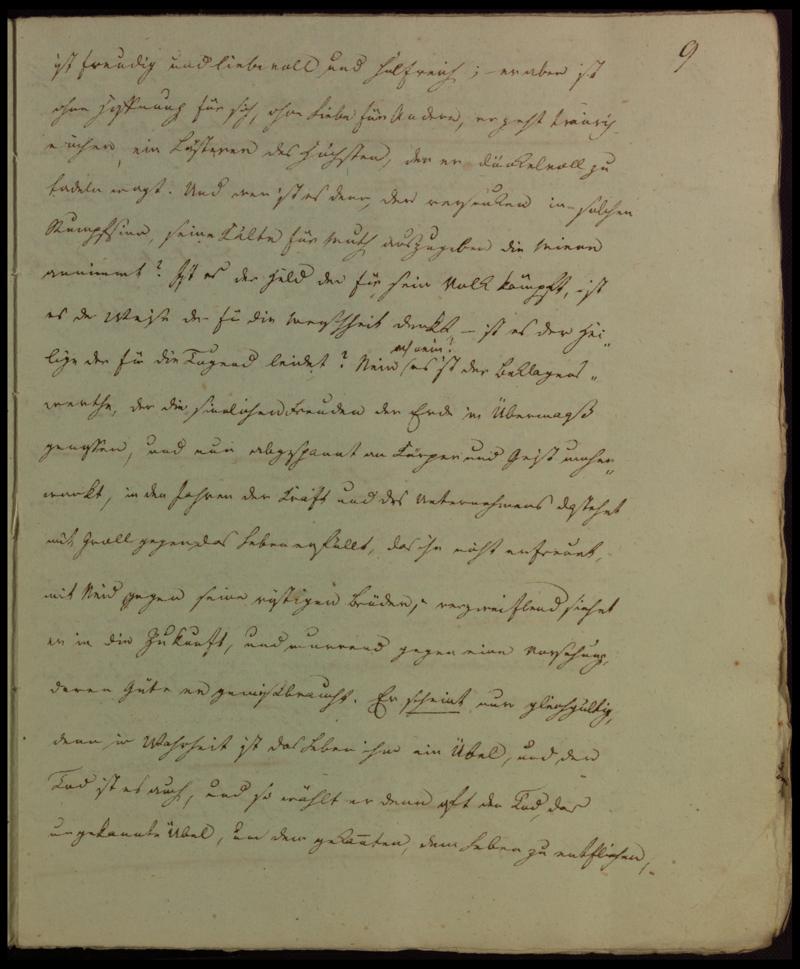 9
ist freudig und liebevoll und hülfreich; – er aber ist
ohne Hoffnung für sich, ohne Liebe für Andere, er geht traurig
einher, ein Lästerer des Höchsten, den er dünkelvoll zu
tadeln wagt. Und wer ist es denn, der versunken in solchen
Stumpfsinn, seine Kälte für Muth auszugeben die Miene
annimmt? Ist es der Held der für sein Volk kämpft, ist
es der Weise der für die Menschheit denkt – ist es der Hei„
ach nein?
lige der für die Tugend leidet? Nein es ist der Beklagens„
werthe, der die sinnlichen Freuden der Erde im Übermaaß
genossen, und nun abgespannt an Körper und Geist umher„
wankt, in den Jahren der Kraft und des Unternehmens dasteht
mit Groll gegen das Leben erfüllt, das ihn nicht erfreut,
mit Neid gegen seine rüstigen Brüder, verzweiflend siehet
er in die Zukunft, und murrend gegen eine Vorsehung,
deren Güte er gemißbraucht. Er scheint nur gleichgültig,
denn in Wahrheit ist das Leben ihm ein Übel, und der
Tod ist es auch, und so wählt er denn oft den Tod, das
ungekannte Übel, um dem gekannten, dem Leben zu entfliehen,